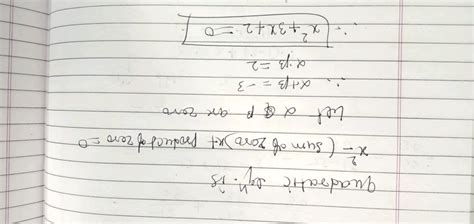 quadratic eqn. is
x² - (sum of zero)x + product of zero = 0
Let α & β are zero
∴ α+β = -3
α.β = 2
∴ x² + 3x + 2 = 0